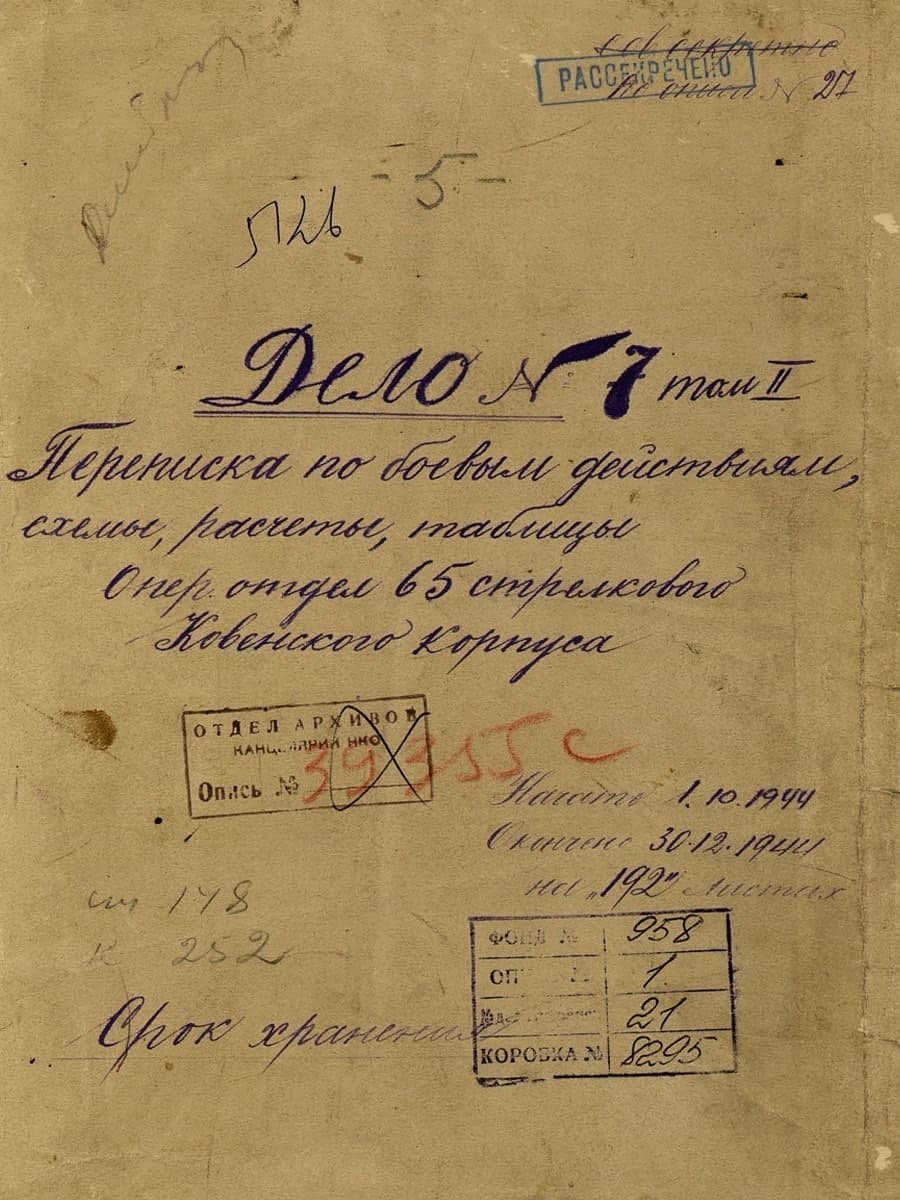 Сов секретно
РАССЕКРЕЧЕНО
По описи № 27
- 5 -
Дело № 7 том II
Переписка по боевым действиям,
схемы, расчеты, таблицы
Опер. отдел 65 стрелкового
Ковенского корпуса
ОТДЕЛ АРХИВОВ
КАНЦЕЛЯРИИ НКО
Опись №
39355с
Начато 1.10.1944
Окончено 30.12.1944
на „192" листах
148
к 252
ФОНД № 958
ОП № 1
21
КОРОБКА № 8295
Срок хранения